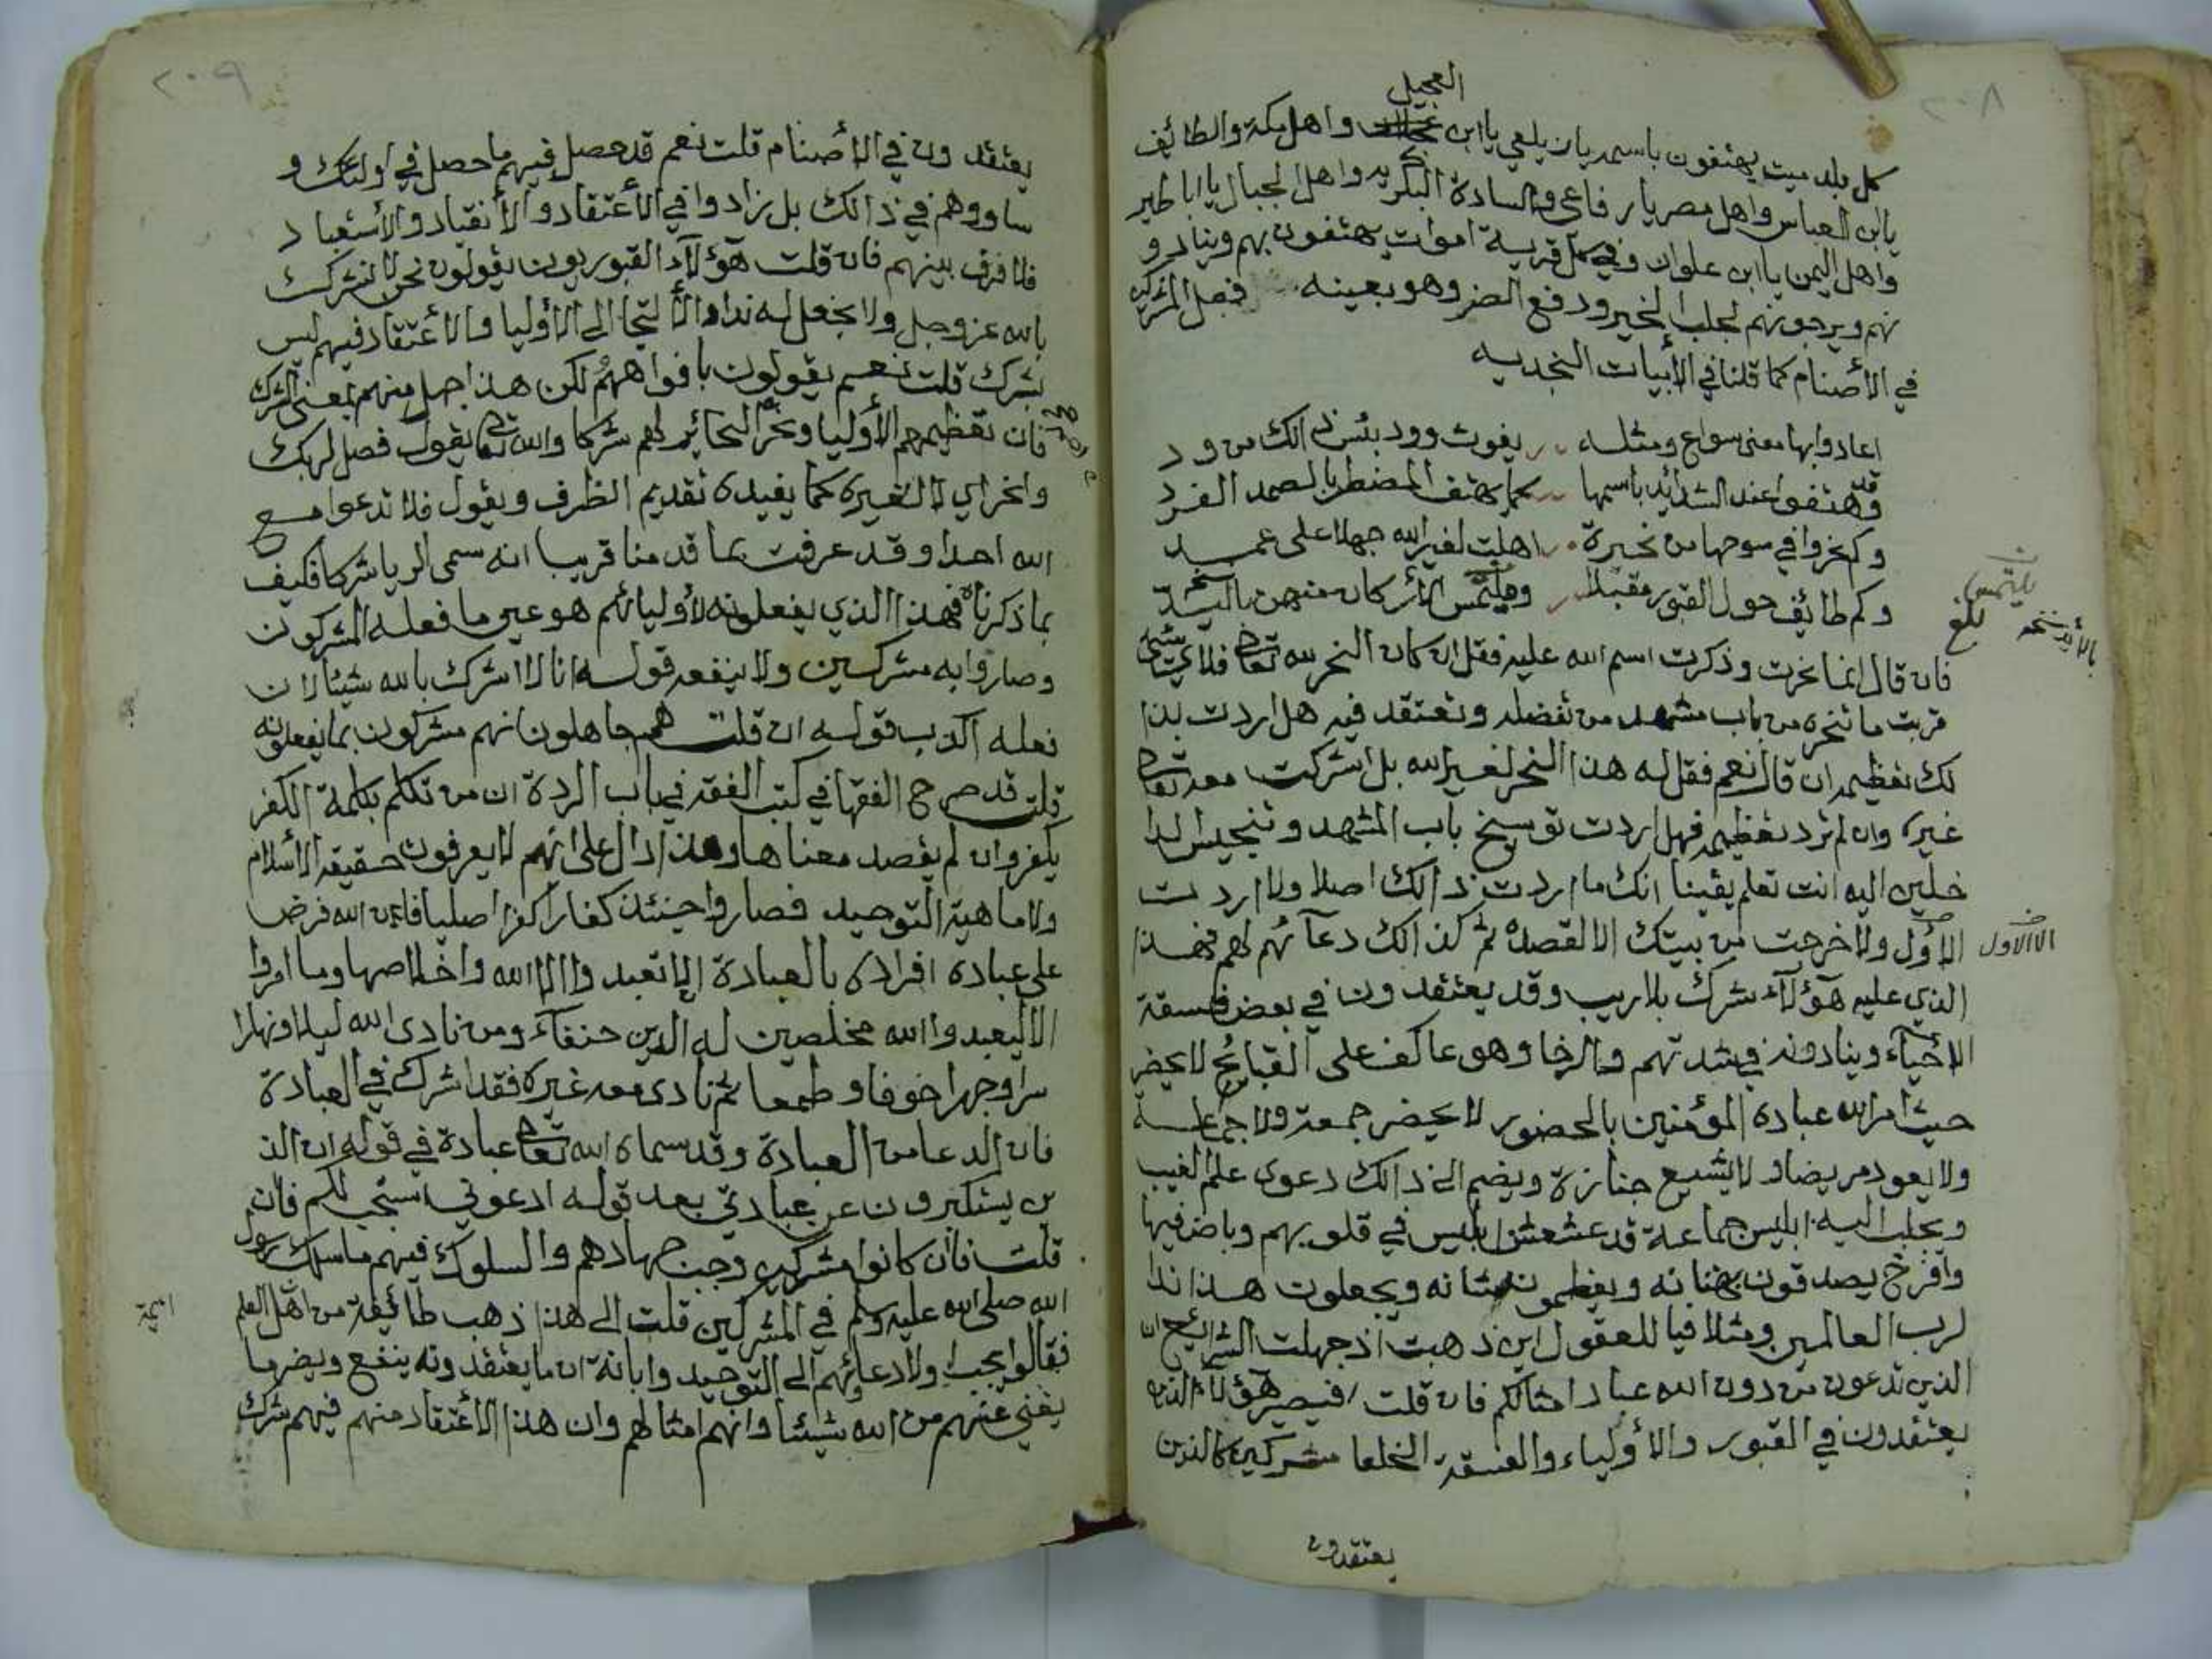 ٢٠٨
العجيل
كل بلد ميت يهتفون باسمه يا زيلعي يا ابن واهل مكة والطائف
يا ابن العباس واهل مصر يا رفاعي والسادة البكريه واهل الجبال يا ابا طير
واهل اليمن يا ابن علوان وفي كل قرية اموات يهتفون بهم وينادو
نهم ويرجونهم لجلب الخير ودفع الضر وهو بعينه فعل المشركين
في الأصنام كما قلنا في الأبيات النجديه
اعادوا بها معنى سواع ومثله يغوث وود بئس ذالك من ود
وقد هتفوا عند الشدايد باسمها كما يهتف المضطر بالصمد الفرد
وكم نحروا في سوحها من نحيرة اهلت لغير الله جهلا على عمد
وكم طايف حول القبور مقبلا ويلتمس الأركان منهن باليد
يلتمس
بالأيد نسخه
بلغ
فان قال انما نحرت وذكرت اسم الله عليه فقل ان كان النحر لله تعالى فلاي شي
قربت ما تنحره من باب مشهد من تفضله وتعتقد فيه هل اردت بذا
لك تعظيمه ان قال نعم فقل له هذا النحر لغير الله بل اشركت معه تعالى
غيره وان لم ترد تعظيمه فهل اردت توسيخ باب المشهد وتنجيس الدا
خلين اليه انت تعلم يقينا انك ما اردت ذالك اصلا ولا اردت
الأول ولا خرجت من بيتك الا لقصده ثم كذالك دعآئهم لهم فهذا
الا الاول
الذي عليه هؤلآء شرك بلا ريب وقد يعتقدون في بعض فسقة
الأحيآء وينادونه في شدتهم والرخا وهو عاكف على القبائح لا يحضر
حيث امر الله عباده المؤمنين بالحضور لا يحضر جمعة ولا جماعة
ولا يعود مريضا ولا يشيع جنازة ويضم الى ذالك دعوى علم الغيب
ويجلب اليه ابليس جماعة قد عشعش ابليس في قلوبهم وباض فيها
وافرخ يصدقون بهتانه ويعظمون شانه ويجعلون هذا ندا
لرب العالمين ومثلا فيا للعقول اين ذهبت اذ جهلت الشرائع ان
الذين تدعون من دون الله عباد امثالكم فان قلت افيصير هؤلاء الذين
يعتقدون في القبور والأولياء والفسقة الخلعا مشركين كالذين
يعتقدون
٢٠٩
يعتقدون في الأصنام قلت نعم قد حصل فيهم ما حصل في اولئك و
ساووهم في ذالك بل زادوا في الأعتقاد والأنقياد والأستعباد
فلا فرق بينهم فان قلت هؤلآء القبوريون يقولون نحن لا نشرك
بالله عز وجل ولا نجعل له ندا والألتجا الى الأوليا والأعتقاد فيهم ليس
بشرك قلت نعم يقولون بافواههم لكن هذا جهل منهم بمعنى الشرك
فان تعظيمهم الأوليا ونحر النحائر لهم شركا والله تعالى يقول فصل لربك
وانحر اي لا لغيره كما يفيده تقديم الظرف ويقول فلا تدعوا مع
الله احدا وقد عرفت بما قدمنا قريبا انه سمى الريا شركا فكيف
بما ذكرناه فهذا الذي يفعلونه لأوليائهم هو عين ما فعله المشركون
وصاروا به مشركين ولا ينفعه قوله انا لا اشرك بالله شيئا لان
فعله اكذب قوله ان قلت هم جاهلون انهم مشركون بما يفعلونه
قلت قد صرح الفقها في كتب الفقه في باب الردة ان من تكلم بكلمة الكفر
يكفر وان لم يقصد معناها وهذا دال على انهم لا يعرفون حقيقة الاسلام
ولا ماهية التوحيد فصاروا حينئذ كفارا كفرا اصليا فان الله فرض
على عباده افراده بالعبادة ان لا تعبدوا الا الله واخلاصها وما امروا
الا ليعبدوا الله مخلصين له الدين حنفآء ومن نادى الله ليلا ونهارا
سرا وجهرا خوفا وطمعا ثم نادى معه غيره فقد اشرك في العبادة
فان الدعا من العبادة وقد سماه الله تعالى عبادة في قوله ان الذ
ين يستكبرون عن عبادتي بعد قوله ادعوني استجب لكم فان
قلت فان كانوا مشركين وجب جهادهم والسلوك فيهم ما سلك رسول
الله صلى الله عليه وسلم في المشركين قلت الى هذا ذهب طائفة من اهل العلم
فقالوا يجب اولا دعائهم الى التوحيد وابانة ان ما يعتقدونه ينفع ويضر ما
يغني عنهم من الله شيئا وانهم امثالهم وان هذا الأعتقاد منهم فيهم شرك